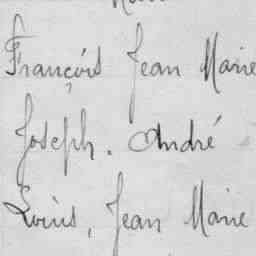 François Jean Marie
Joseph. André
Louis, Jean Marie